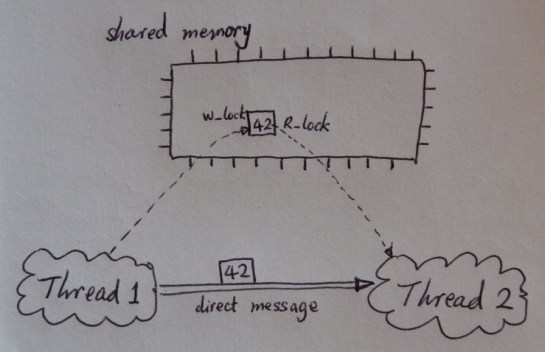 shared memory
W_lock 42 R_lock
42
Thread 1
direct message
Thread 2